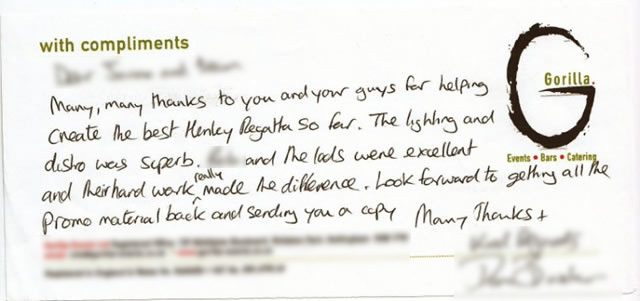 with compliments
Gorilla.
Events • Bars • Catering
Many, many thanks to you and your guys for helping
create the best Henley Regatta so far. The lighting and
distro was superb. and the lads were excellent
and their hard work really made the difference. Look forward to getting all the
promo material back and sending you a copy Many Thanks +